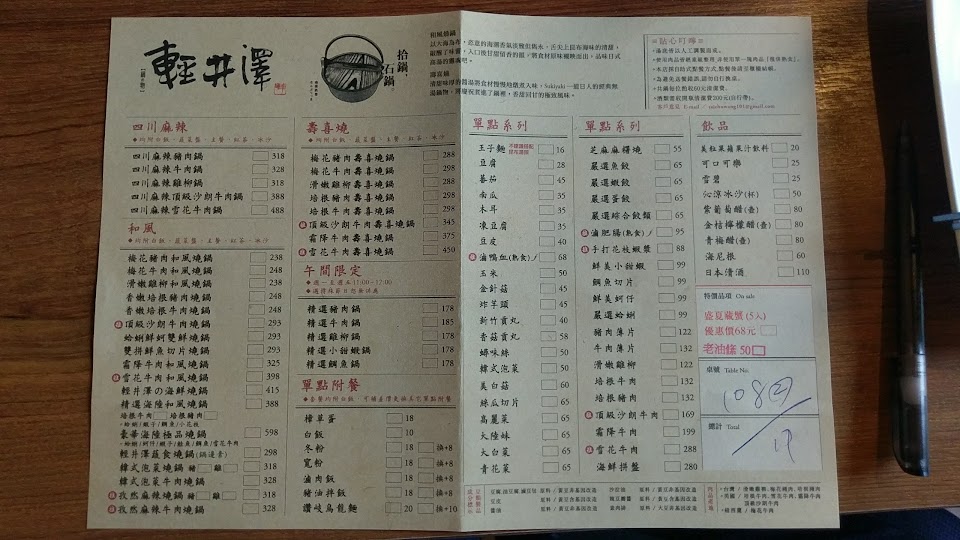 輕井澤
拾鍋
石鍋
貼心叮嚀
四川麻辣
四川麻辣豬肉鍋 318
四川麻辣牛肉鍋 328
四川麻辣雞柳鍋 318
四川麻辣頂級沙朗牛肉鍋 388
四川麻辣雪花牛肉鍋 488
和風
梅花豬肉和風燒鍋 238
梅花牛肉和風燒鍋 248
滑嫩雞柳和風燒鍋 238
香嫩培根豬肉燒鍋 248
香嫩培根牛肉燒鍋 248
頂級沙朗牛肉燒鍋 293
蛤蜊鮮蚵雙鮮燒鍋 293
雙拼鮮魚切片燒鍋 293
霜降牛肉和風燒鍋 325
雪花牛肉和風燒鍋 398
輕井澤の海鮮燒鍋 415
精選海陸和風燒鍋 388
培根牛肉 培根豬肉
豪華海陸極品燒鍋 598
輕井澤蔬食燒鍋(鍋邊素) 298
韓式泡菜燒鍋 豬 雞 318
韓式泡菜牛肉燒鍋 328
孜然麻辣燒鍋 豬 雞 318
孜然麻辣牛肉燒鍋 328
壽喜燒
梅花豬肉壽喜燒鍋 288
梅花牛肉壽喜燒鍋 298
滑嫩雞柳壽喜燒鍋 288
培根豬肉壽喜燒鍋 298
培根牛肉壽喜燒鍋 298
頂級沙朗牛肉壽喜燒鍋 345
霜降牛肉壽喜燒鍋 375
雪花牛肉壽喜燒鍋 450
午間限定
◆週一至週五11:00~17:00
精選豬肉鍋 178
精選牛肉鍋 185
精選雞柳鍋 178
精選小甜蝦鍋 178
精選鯛魚鍋 178
單點附餐
樟草蛋 18
白飯 10
冬粉 18 換+8
寬粉 18 換+8
滷肉飯 18 換+8
豬油拌飯 18 換+8
讚岐烏龍麵 20 換+10
單點系列
王子麵 16
豆腐 28
蕃茄 45
南瓜 35
木耳 35
凍豆腐 35
豆皮 40
滷鴨血(熟食) 68
玉米 50
金針菇 45
炸芋頭 45
新竹貢丸 40
香菇貢丸 58
蟳味絲 50
韓式泡菜 50
美白菇 60
絲瓜切片 65
高麗菜 65
大陸妹 65
大白菜 65
青花菜 65
單點系列
芝麻麻糬燒 55
嚴選魚餃 65
嚴選蝦餃 65
嚴選蛋餃 65
嚴選綜合餃類 65
滷肥腸(熟食) 95
手打花枝蝦漿 88
鮮美小甜蝦 99
鯛魚切片 99
鮮美蚵仔 99
嚴選蛤蜊 99
豬肉薄片 122
牛肉薄片 132
滑嫩雞柳 122
培根牛肉 132
培根豬肉 132
頂級沙朗牛肉 169
霜降牛肉 199
雪花牛肉 288
海鮮拼盤 280
飲品
美粒果蘋果汁飲料 20
可口可樂 25
雪碧 25
沁涼冰沙(杯) 50
紫葡萄醋(壺) 80
金桔檸檬醋(壺) 80
青梅醋(壺) 80
海尼根 60
日本清酒 110
特價品項 On sale
盛夏藏蟹(5入)
優惠價68元
老油條 50
桌號 Table No.
108
總計 Total